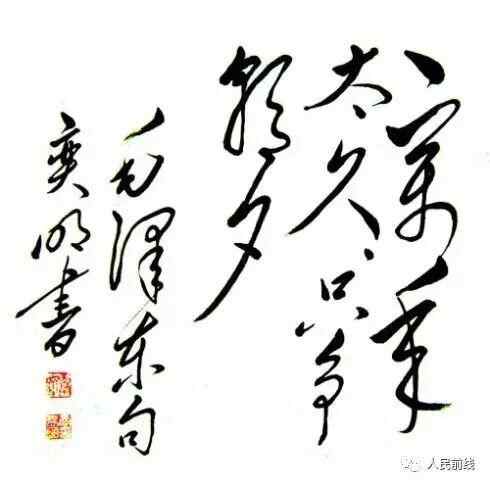 一萬年
太久只争
朝夕
毛澤東句
奕明書
人民前线